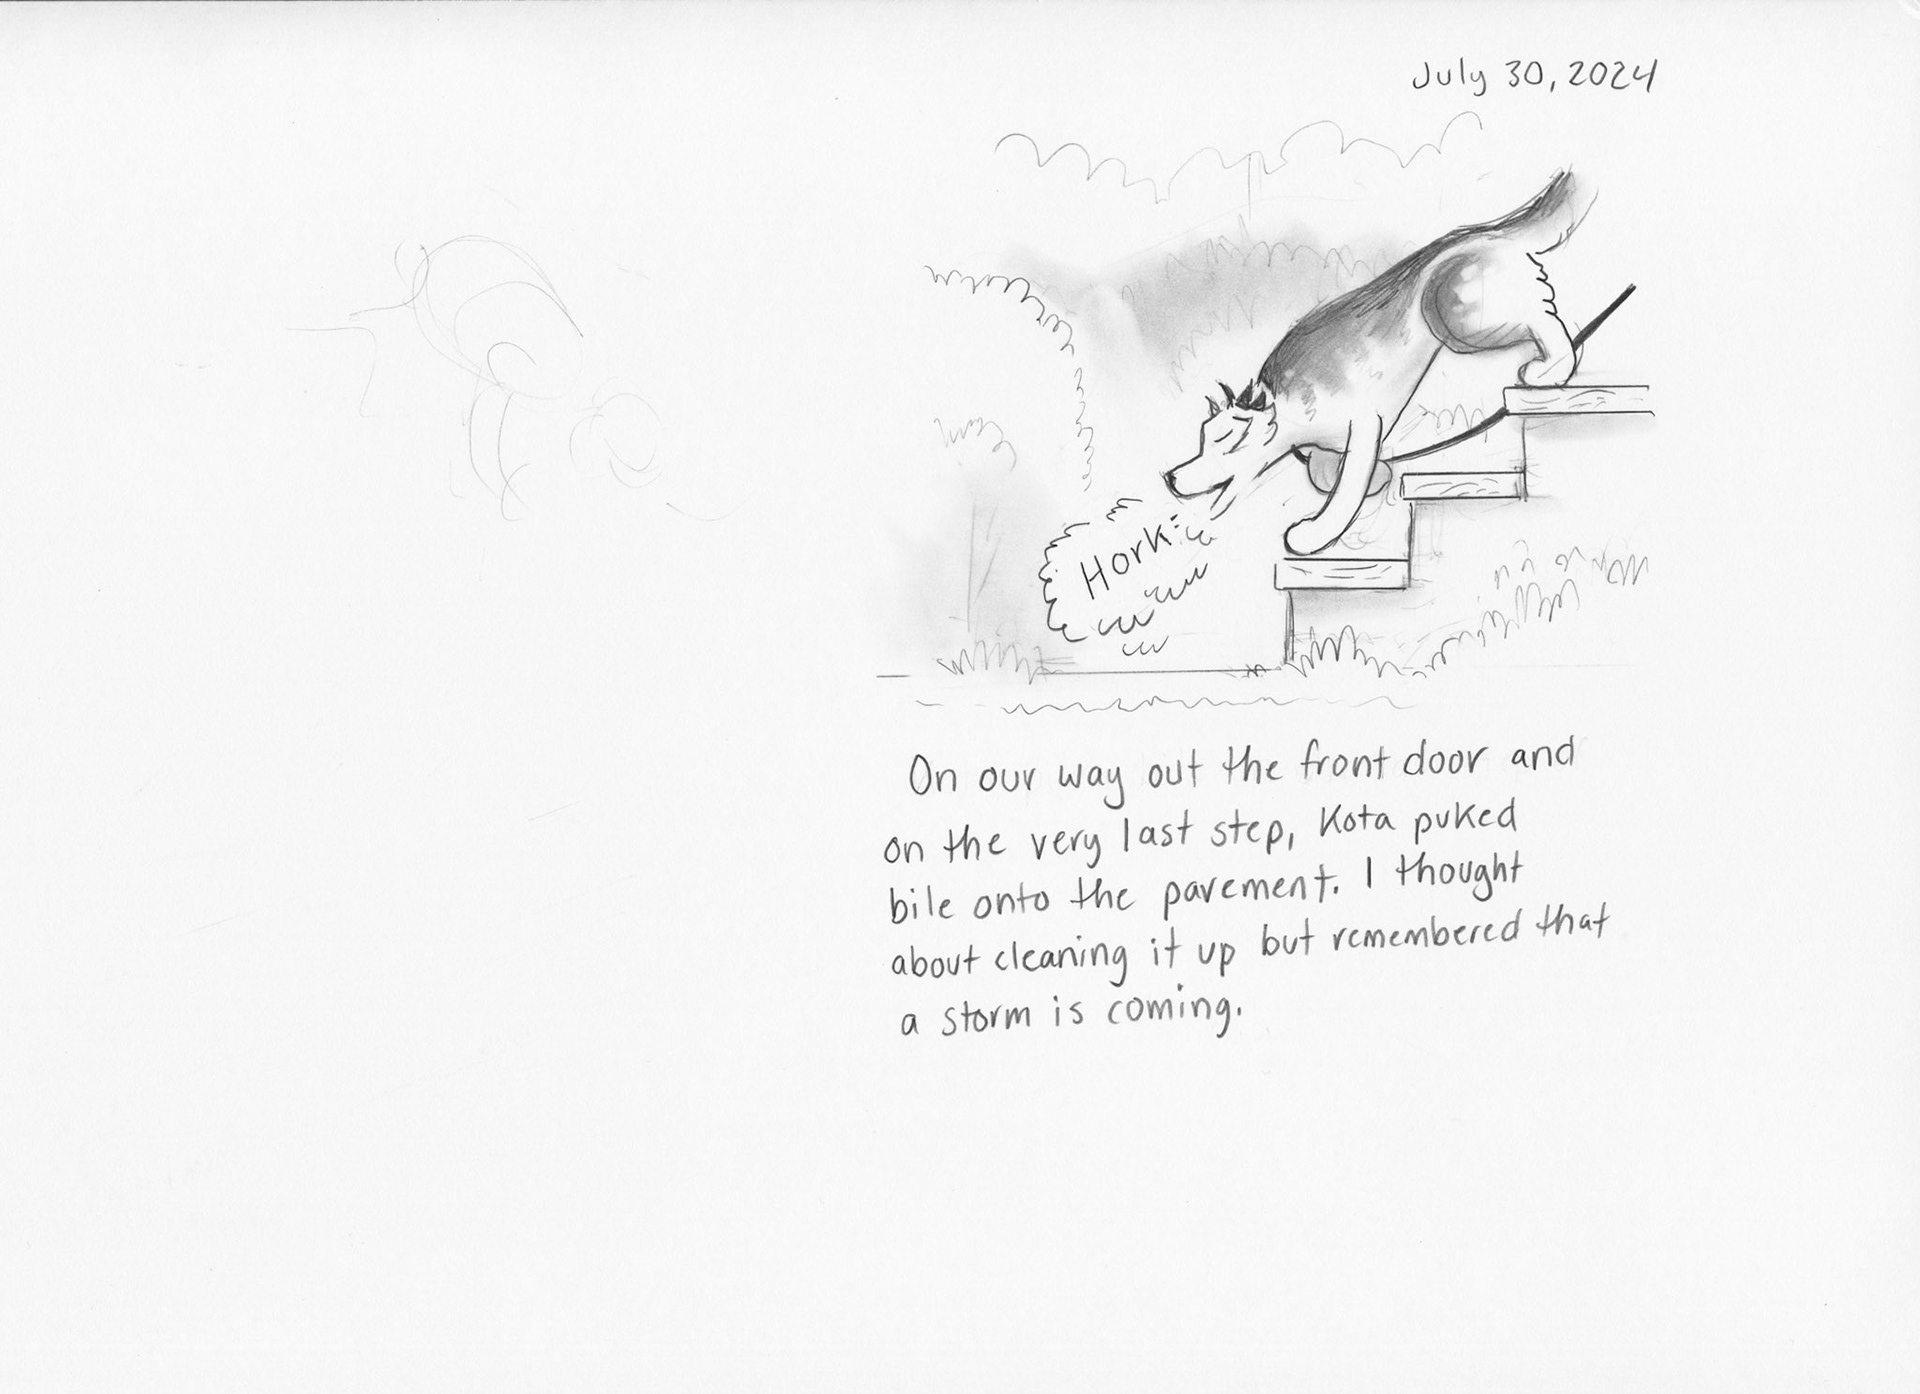 July 30, 2024
Hork
On our way out the front door and
on the very last step, Kota puked
bile onto the pavement. I thought
about cleaning it up but remembered that
a storm is coming.